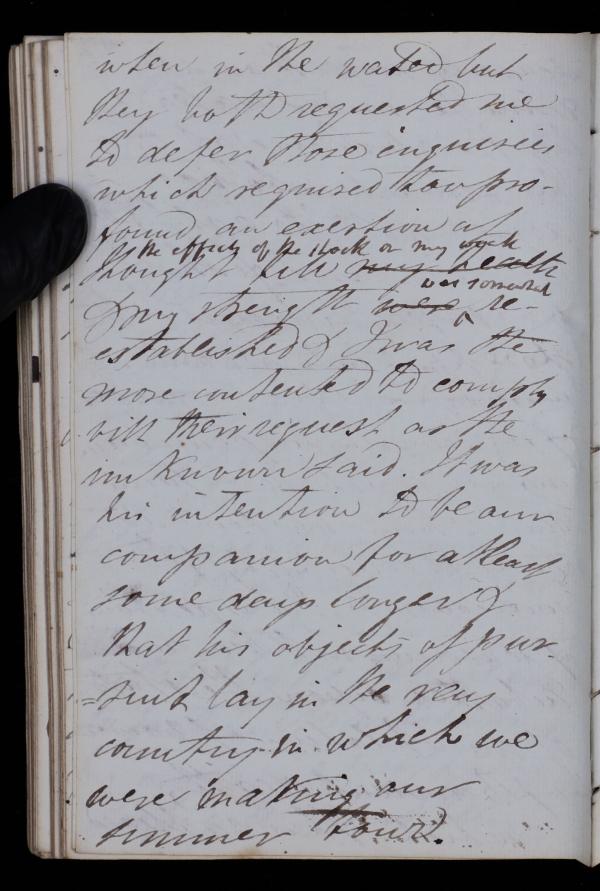 when in the water but
they both requested me
to defer those inquiries
which required too pro-
found an exertion of
the effects of the shock on my weak
thought till my health
was somewhat
& my strength were re-
established & I was the
more contented to comply
with their request as the
unknown said. It was
his intention to be our
companion for at least
some days longer &
that his objects of pur-
=suit lay in the very
country in which we
were making our
summer tour.